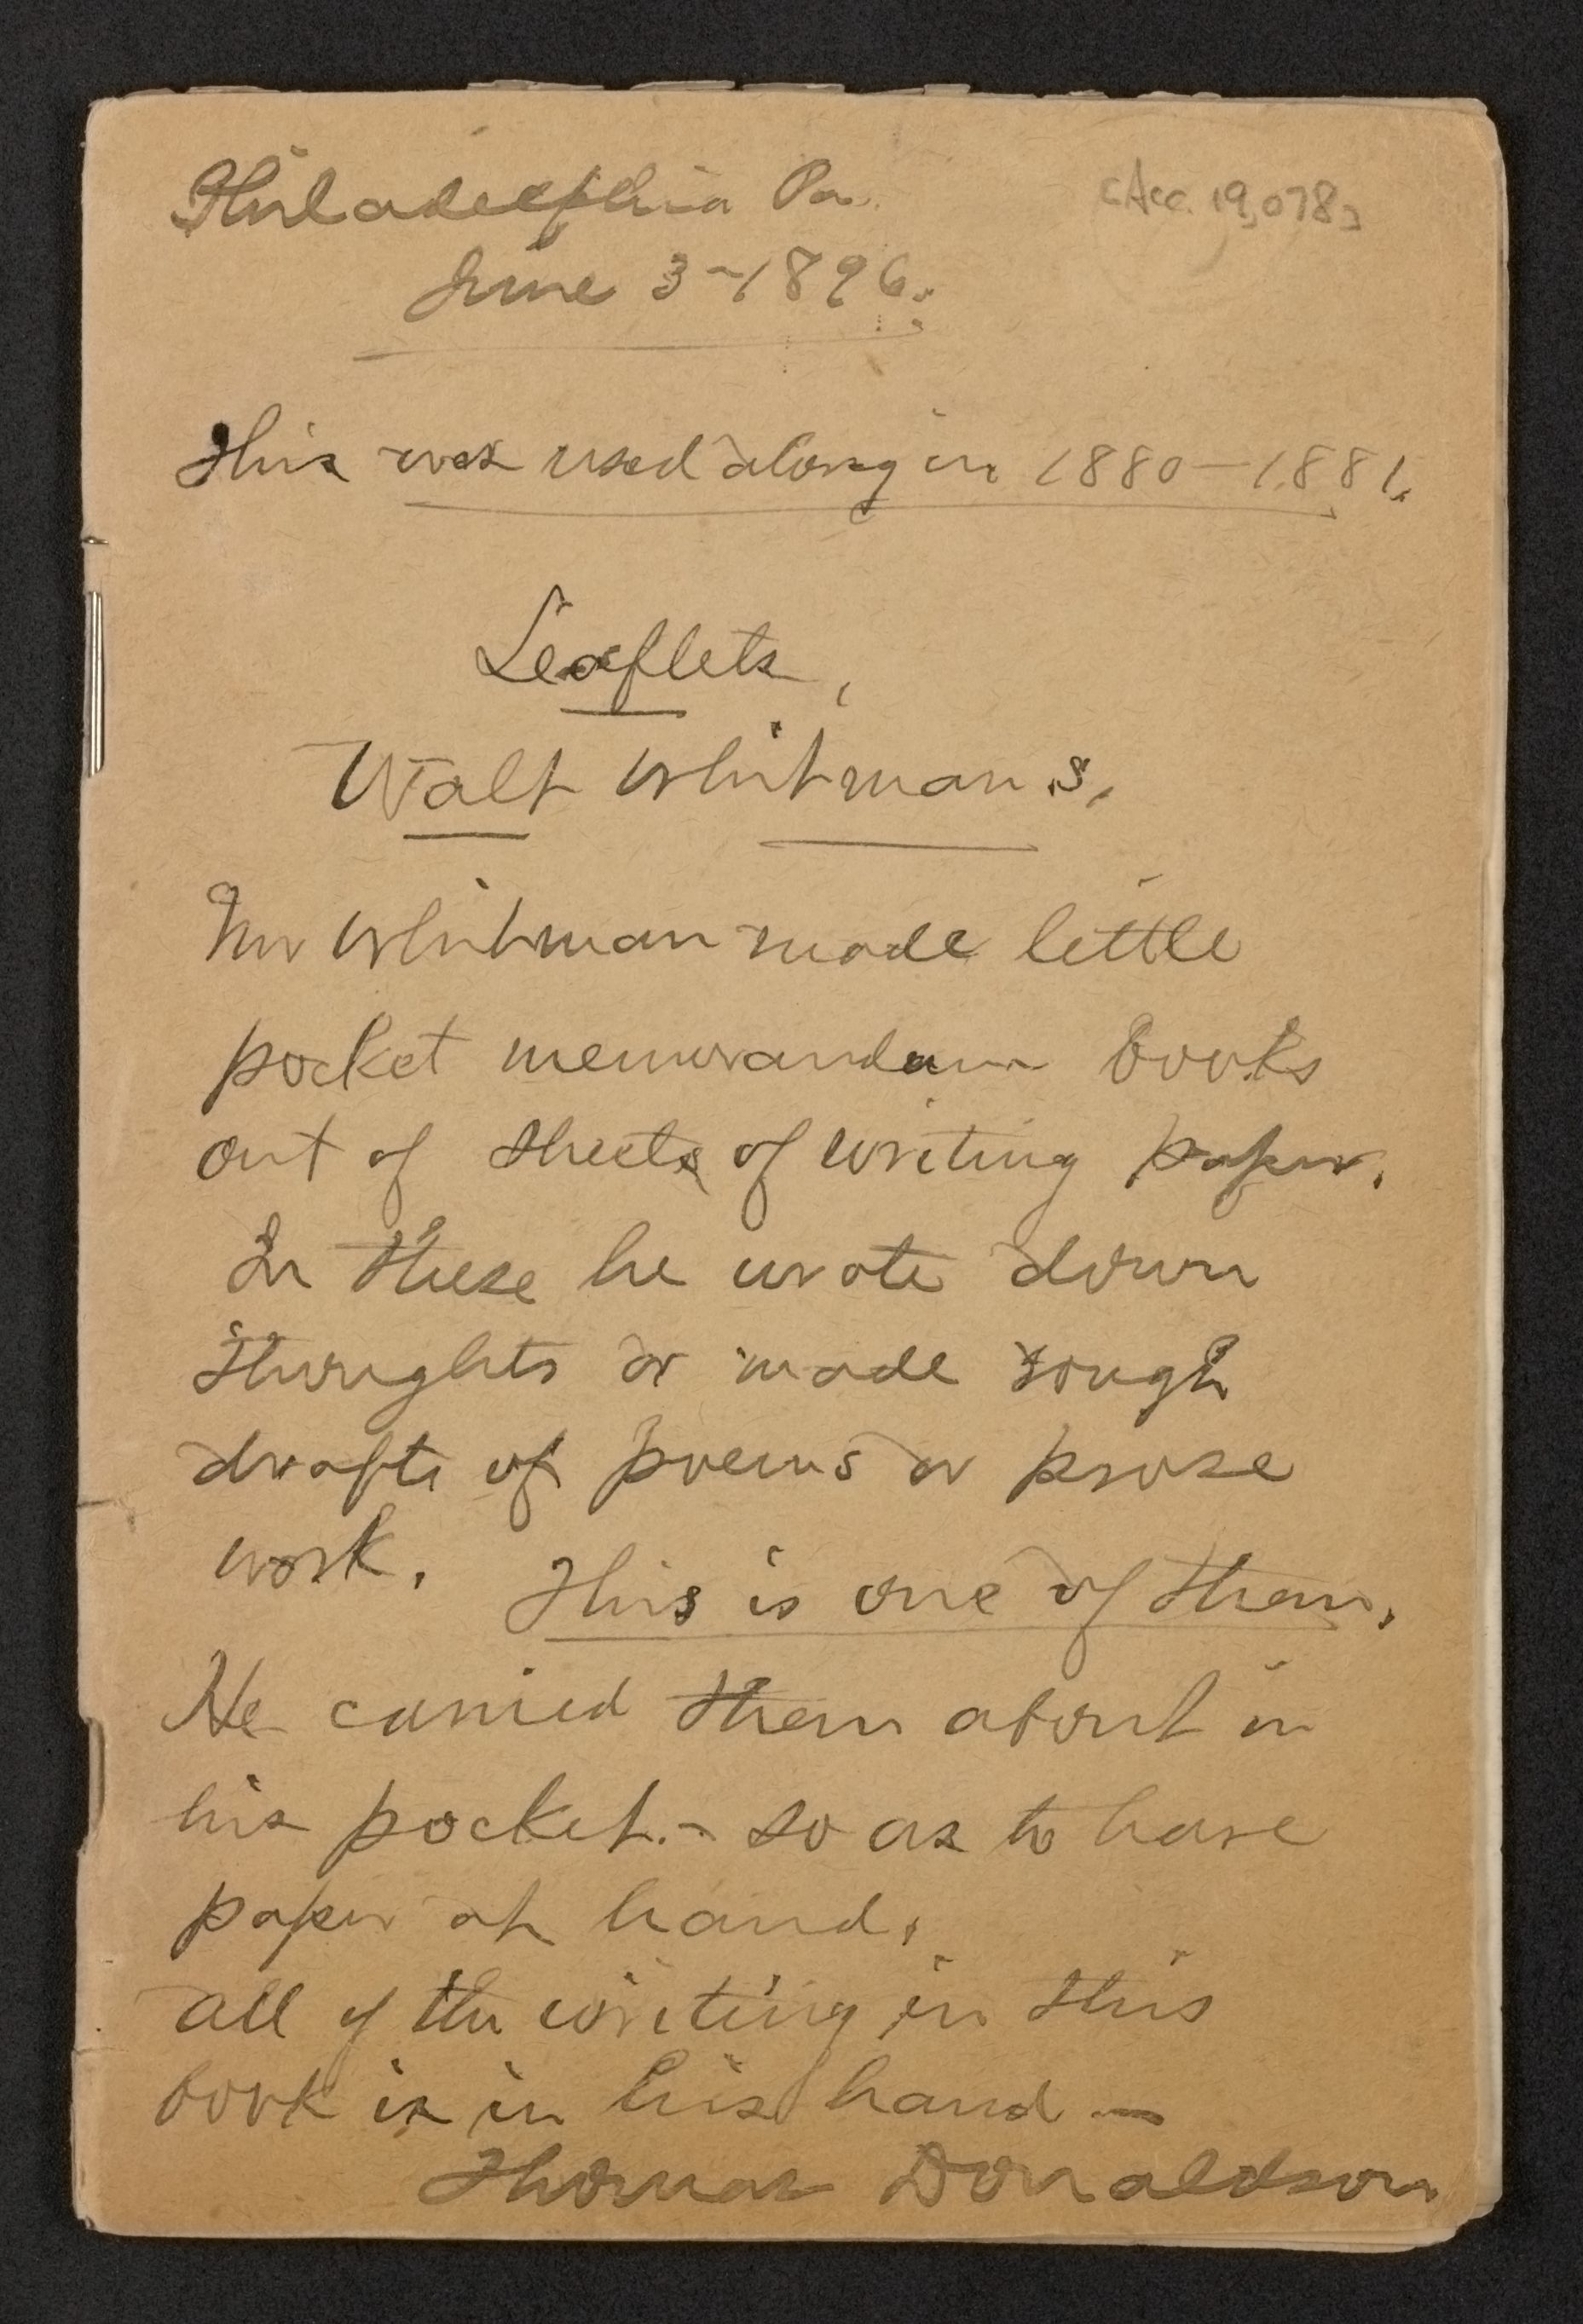 Philadelphia Pa.
[Acc. 19,078]
June 3-1896.
This was used along in 1880-1881.
Leaflets,
Walt Whitmans.
Mr Whitman made little
pocket memorandum books
out of sheets of writing paper.
In these he wrote down
thoughts or made rough
drafts of poems or prose
work. This is one of them.
He carried them about in
his pocket.- so as to have
paper at hand.
All of the writing in this
book is in his hand —
Thomas Donaldson